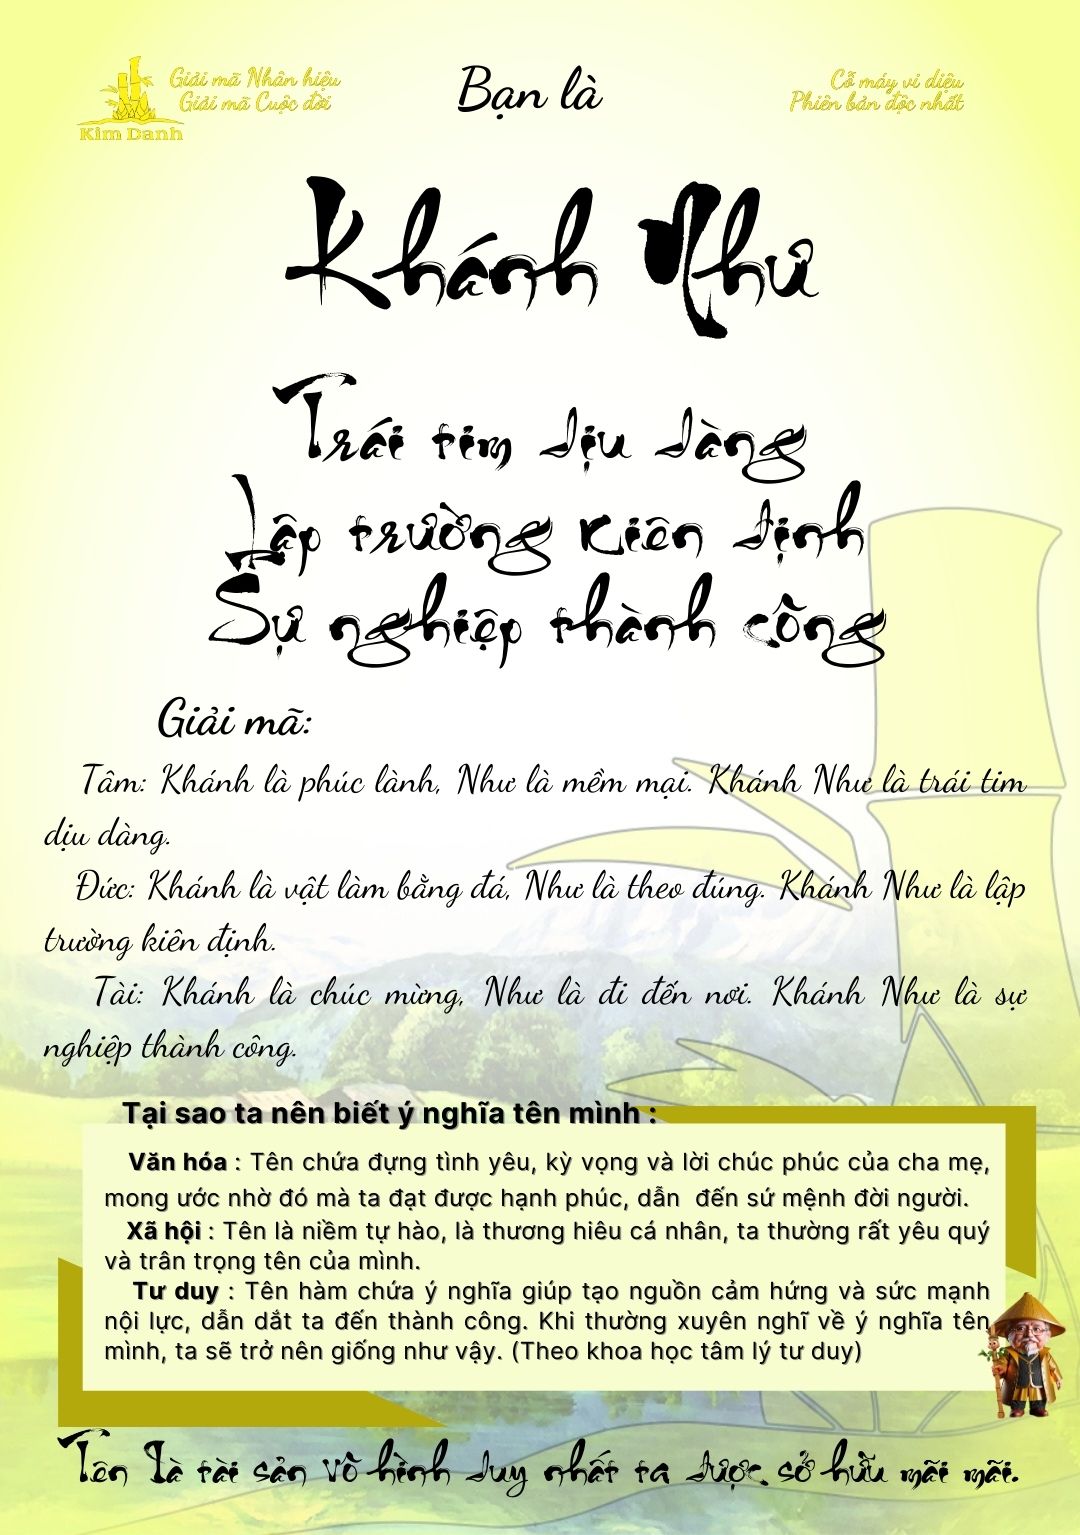 Giải mã Nhân hiệu
Giải mã Cuộc đời
Kim Danh
Bạn là
Cỗ máy vi diệu
Phiên bản độc nhất
Khánh Như
Trái tim dịu dàng
Lập trường kiên định
Sự nghiệp thành công
Giải mã:
Tâm: Khánh là phúc lành, Như là mềm mại. Khánh Như là trái tim
dịu dàng.
Đức: Khánh là vật làm bằng đá, Như là theo đúng. Khánh Như là lập
trường kiên định.
Tài: Khánh là chúc mừng, Như là đi đến nơi. Khánh Như là sự
nghiệp thành công.
Tại sao ta nên biết ý nghĩa tên mình :
Văn hóa : Tên chứa đựng tình yêu, kỳ vọng và lời chúc phúc của cha mẹ,
mong ước nhờ đó mà ta đạt được hạnh phúc, dẫn đến sứ mệnh đời người.
Xã hội : Tên là niềm tự hào, là thương hiêu cá nhân, ta thường rất yêu quý
và trân trọng tên của mình.
Tư duy : Tên hàm chứa ý nghĩa giúp tạo nguồn cảm hứng và sức mạnh
nội lực, dẫn dắt ta đến thành công. Khi thường xuyên nghĩ về ý nghĩa tên
mình, ta sẽ trở nên giống như vậy. (Theo khoa học tâm lý tư duy)
Tên Là tài sản vô hình duy nhất ta được sở hữu mãi mãi.